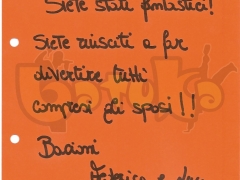 Siete stati fantastici!
Siete riusciti a far
divertire tutti
compresi gli sposi!!
Bacioni
Federica e
BOTUKO